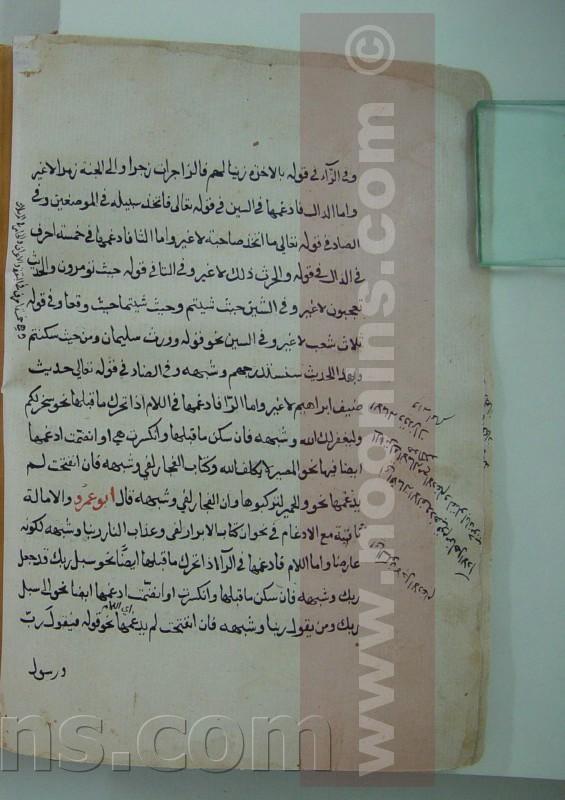 وفي الزاء في قوله بالاخرة زينا لهم فالزاجرات زجرا والى الجنة زمرا لا غير
واما الدال فادغمها في السين في قوله تعالى فاتخذ سبيله في الموضعين وفي
الصاد في قوله تعالى ما اتخذ صاحبة لا غير واما الثا فادغمها في خمسة احرف
في الدال في قوله والحرث ذلك لا غير وفي التا في قوله حيث تومرون والحديث
تعجبون لا غير وفي الشين حيث شيتم وحيث شيتما حيث وقعا وفي قوله
ثلاث شعب لا غير وفي السين نحو قوله وورث سليمان ومن حيث سكنتم
وبهذا الحديث سنستدرجهم وشبهه وفي الضاد في قوله تعالى حديث
ضيف ابراهيم لا غير واما الرا فادغمها في اللام اذا تحرك ما قبلها نحو سخر لكم
وليغفر لك الله وشبهه فان سكن ما قبلها وانكسرت هي او انضمت ادغمها
ايضا فيها نحو المصير لا يكلف الله وكتاب الفجار لفي وشبهه فان انفتحت لم
يدغمها نحو والحمير لتركبوها وان الفجار لفي وشبهه قال ابو عمرو والامالة
ثابتة مع الادغام في نحو ان كتاب الابرار لفي وعذاب النار ربنا وشبهه لكونه
عارضا واما اللام فادغمها في الرا اذا تحرك ما قبلها ايضا نحو سبل ربك قد جعل
ربك وشبهه فان سكن ما قبلها وانكسرت او انضمت ادغمها ايضا نحو الى سبيل
ربك ومن يقول ربنا وشبهه فان انفتحت لم يدغمها نحو قوله فيقول رب
اي اللام
ورسول
www.noornins.com ©
ns.com